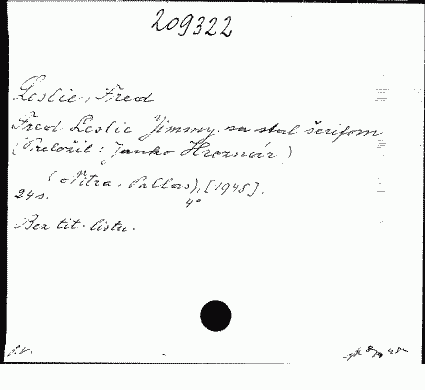 209322
Leslie, Fred
Fred Leslie Jimmy sa stal šerifom
(Preložil: Janko Hroznár)
(Nitra, Pallas), [1948].
24 s. 4°
Bez tit. listu.